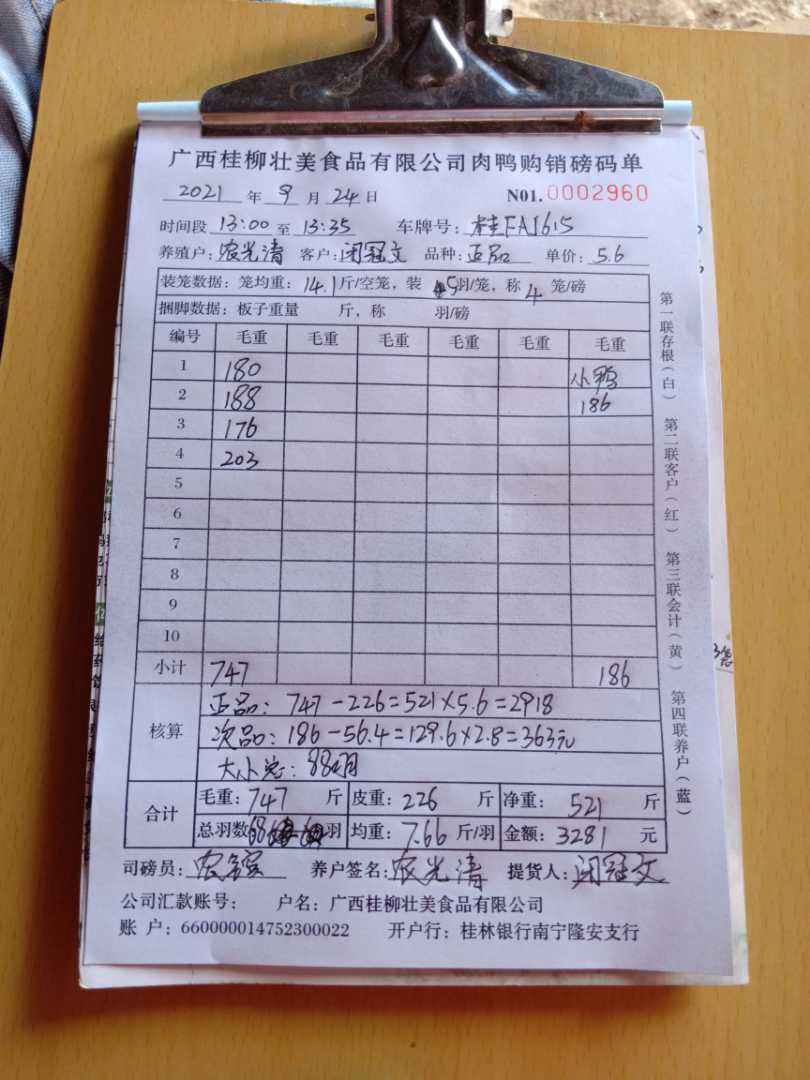 广西桂柳壮美食品有限公司肉鸭购销磅码单
2021 年 9 月 24 日 N01.0002960
时间段 13:00 至 13:35 车牌号: 桂FA1615
养殖户: 农光清 客户: 闭冠文 品种: 正品 单价: 5.6
装笼数据: 笼均重: 14.1 斤/空笼, 装 5羽/笼, 称 4 笼/磅
捆脚数据: 板子重量 斤, 称 羽/磅
编号 毛重 毛重 毛重 毛重 毛重 毛重
1 180 小鸭
2 188 186
3 176
4 203
5
6
7
8
9
10
小计 747 186
核算 正品: 747-226=521×5.6=2918
次品: 186-56.4=129.6×2.8=363元
大小总: 88
合计 毛重: 747 斤 皮重: 226 斤 净重: 521 斤
总羽数 68 羽 均重: 7.66 斤/羽 金额: 3281 元
司磅员: 农 养户签名: 农光清 提货人: 闭冠文
公司汇款账号: 户名: 广西桂柳壮美食品有限公司
账 户: 660000014752300022 开户行: 桂林银行南宁隆安支行
第一联存根(白) 第二联客户(红) 第三联会计(黄) 第四联养户(蓝)